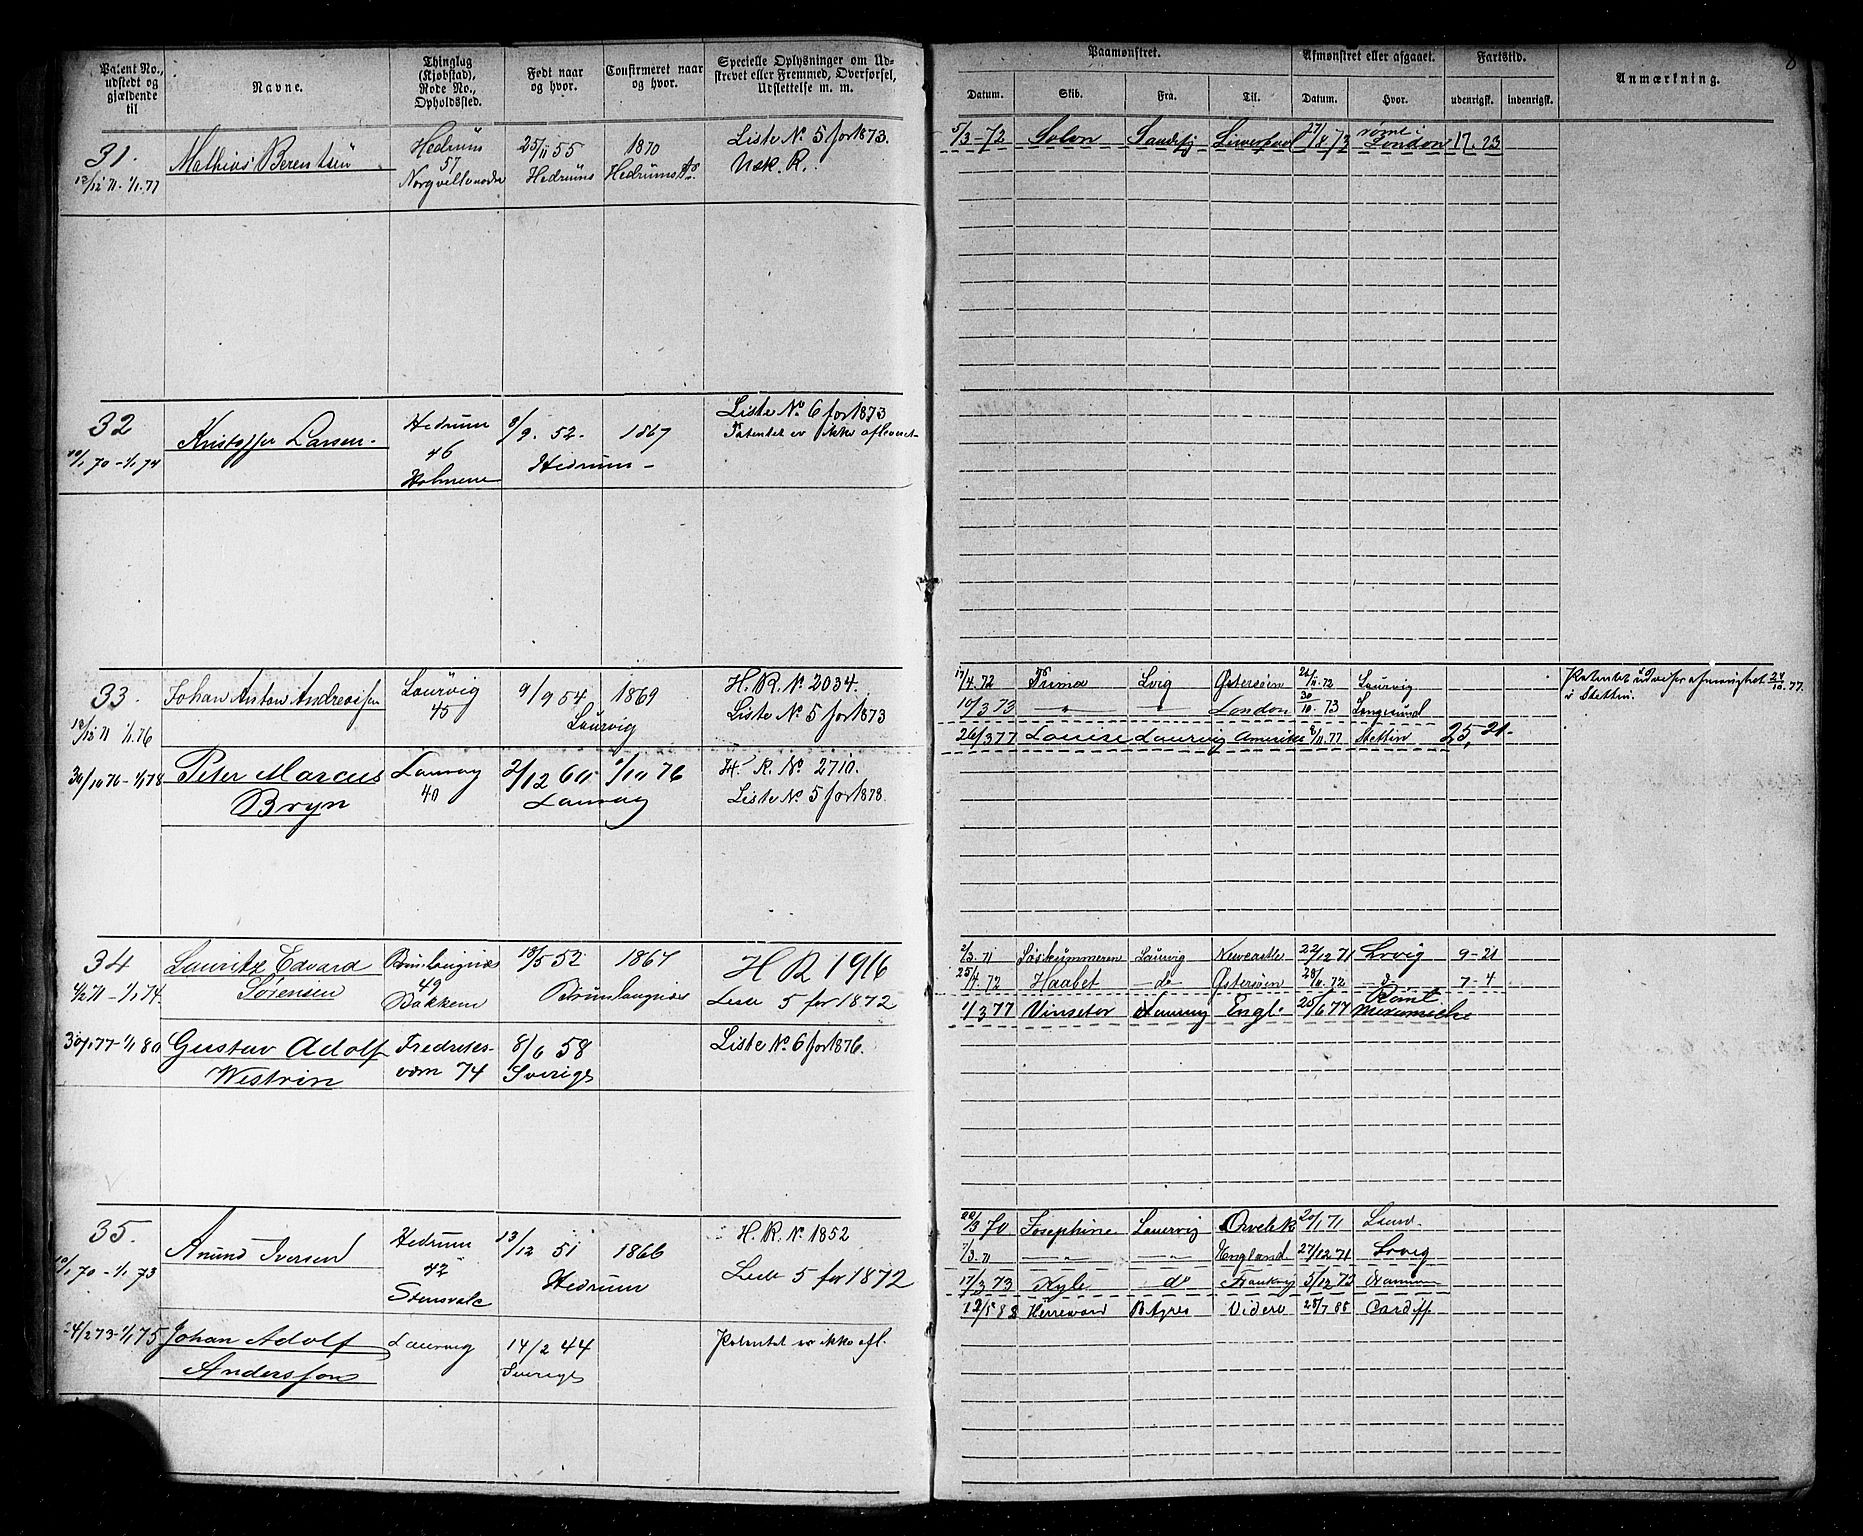 Patent No., udstedt og gjældende til
Navne.
Thinglag (Kjøbstad), Rode No., Opholdssted.
Født naar og hvor.
Confirmeret naar og hvor.
Specielle Oplysninger om Udskrevet eller Fremmed, Overførsel, Udslettelse m. m.
31.
13/12 71 - 1/1 77
Mathias Berentsen
Hedrum
57
25/11 55
Hedrums
1870
Hedrums
Liste No 5 for 1873.
Udsk. R.
32
70 - 1/1 74
Kristoffer Larsen.
Hedrum
46
Holmene
8/9. 52.
1867
Hedrum
Liste No 6 for 1873
Patentet er ikke afleveret
33
12/12 71 1/1 76
Johan Anton Andreassen
Laurvig
45
9/9 54
1869
Laurvig
H. R. No 2034.
Liste No 5 for 1873
30/10 76 - 1/1 78
Peter Marcus
Bryn
Laurvig
40
2/12 60
1/10 76
Laurvig
H. R. No 2710.
Liste No 5 for 1878.
34
4/2 71 - 1/1 74
Lauritz Edvard
Sørensen
Brunlangnæs
49
Bakken
13/5 52
1867
Brunlangnæs
H R 1916
Liste 5 for 1872
30/1 77 - 1/1 80
Gustav Adolf
Westrin
Fredriks-
værn 74
8/6 58
Sverige
Liste No 6 for 1876.
35.
10/1 70 - 1/1 73
Anund Iversen
Hedrum
42
Stensvale
13/12 51
1866
Hedrum
H. R. No 1852
Liste 5 for 1872
24/2 73 - 1/1 75
Johan Adolf
Andersson
Laurvig
14/2 44
Sverige
Patentet er ikke afl.
8
Paamønstret.
Afmønstret eller afgaaet.
Fartstid.
Anmærkning.
Datum.
Skib.
Fra.
Til.
Datum.
Hvor.
udenrigsk.
indenrigsk.
5/3 - 72 Solon Sandefj Liverpool 27/8 73 rømt i London 17. 23
17/4 72 Prima Lvig Østersøen 26/11 72 Laurvig
10/3 73 " " London 30/10 73 Langesund
26/3 77 Louise Laurvig Amerika 8/11 77 Stettin 25, 21.
Patentet 24/10 77.
i Stettin.
2/3 71 Laurvig Newcastle 22/12 71 Lrvig 9 - 21
25/4 72 Haabet do Østersøen 28/10 72 do 7 - 4
1/3 77 Engl. 25/6 77 Rømt
22/3 70 Josephine Laurvig 20/1 71
1/3 71 " " England 27/12 71 Lrvig
17/3 73 Kyle do 5/12 73
12/5 88 Herrevard B Ayres 28/7 88 Cardiff